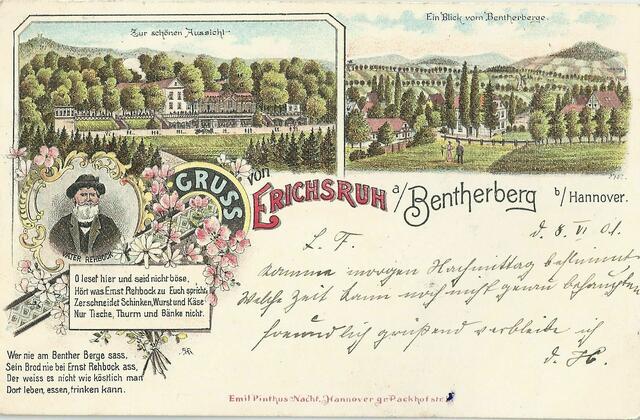 Zur schönen Aussicht
Ein Blick vom Bentherberge.
GRUSS von ERICHSRUH a/Bentherberg b/Hannover.
VATER REHBOCK
O leset hier und seid nicht böse,
Hört was Ernst Rehbock zu Euch spricht,
Zerschneidet Schinken, Wurst und Käse
Nur Tische, Thurm und Bänke nicht.
Wer nie am Benther Berge sass,
Sein Brod nie bei Ernst Rehbock ass,
Der weiss es nicht wie köstlich man
Dort leben, essen, trinken kann.
d. 8. VI 01.
L. F.
Komme morgen Nachmittag bestimmt
Welche Zeit kann noch nicht genau behaupten
freundlich grüßend verbleibe ich
d. H.
Emil Pinthus Nachf. Hannover gr. Packhofstr.